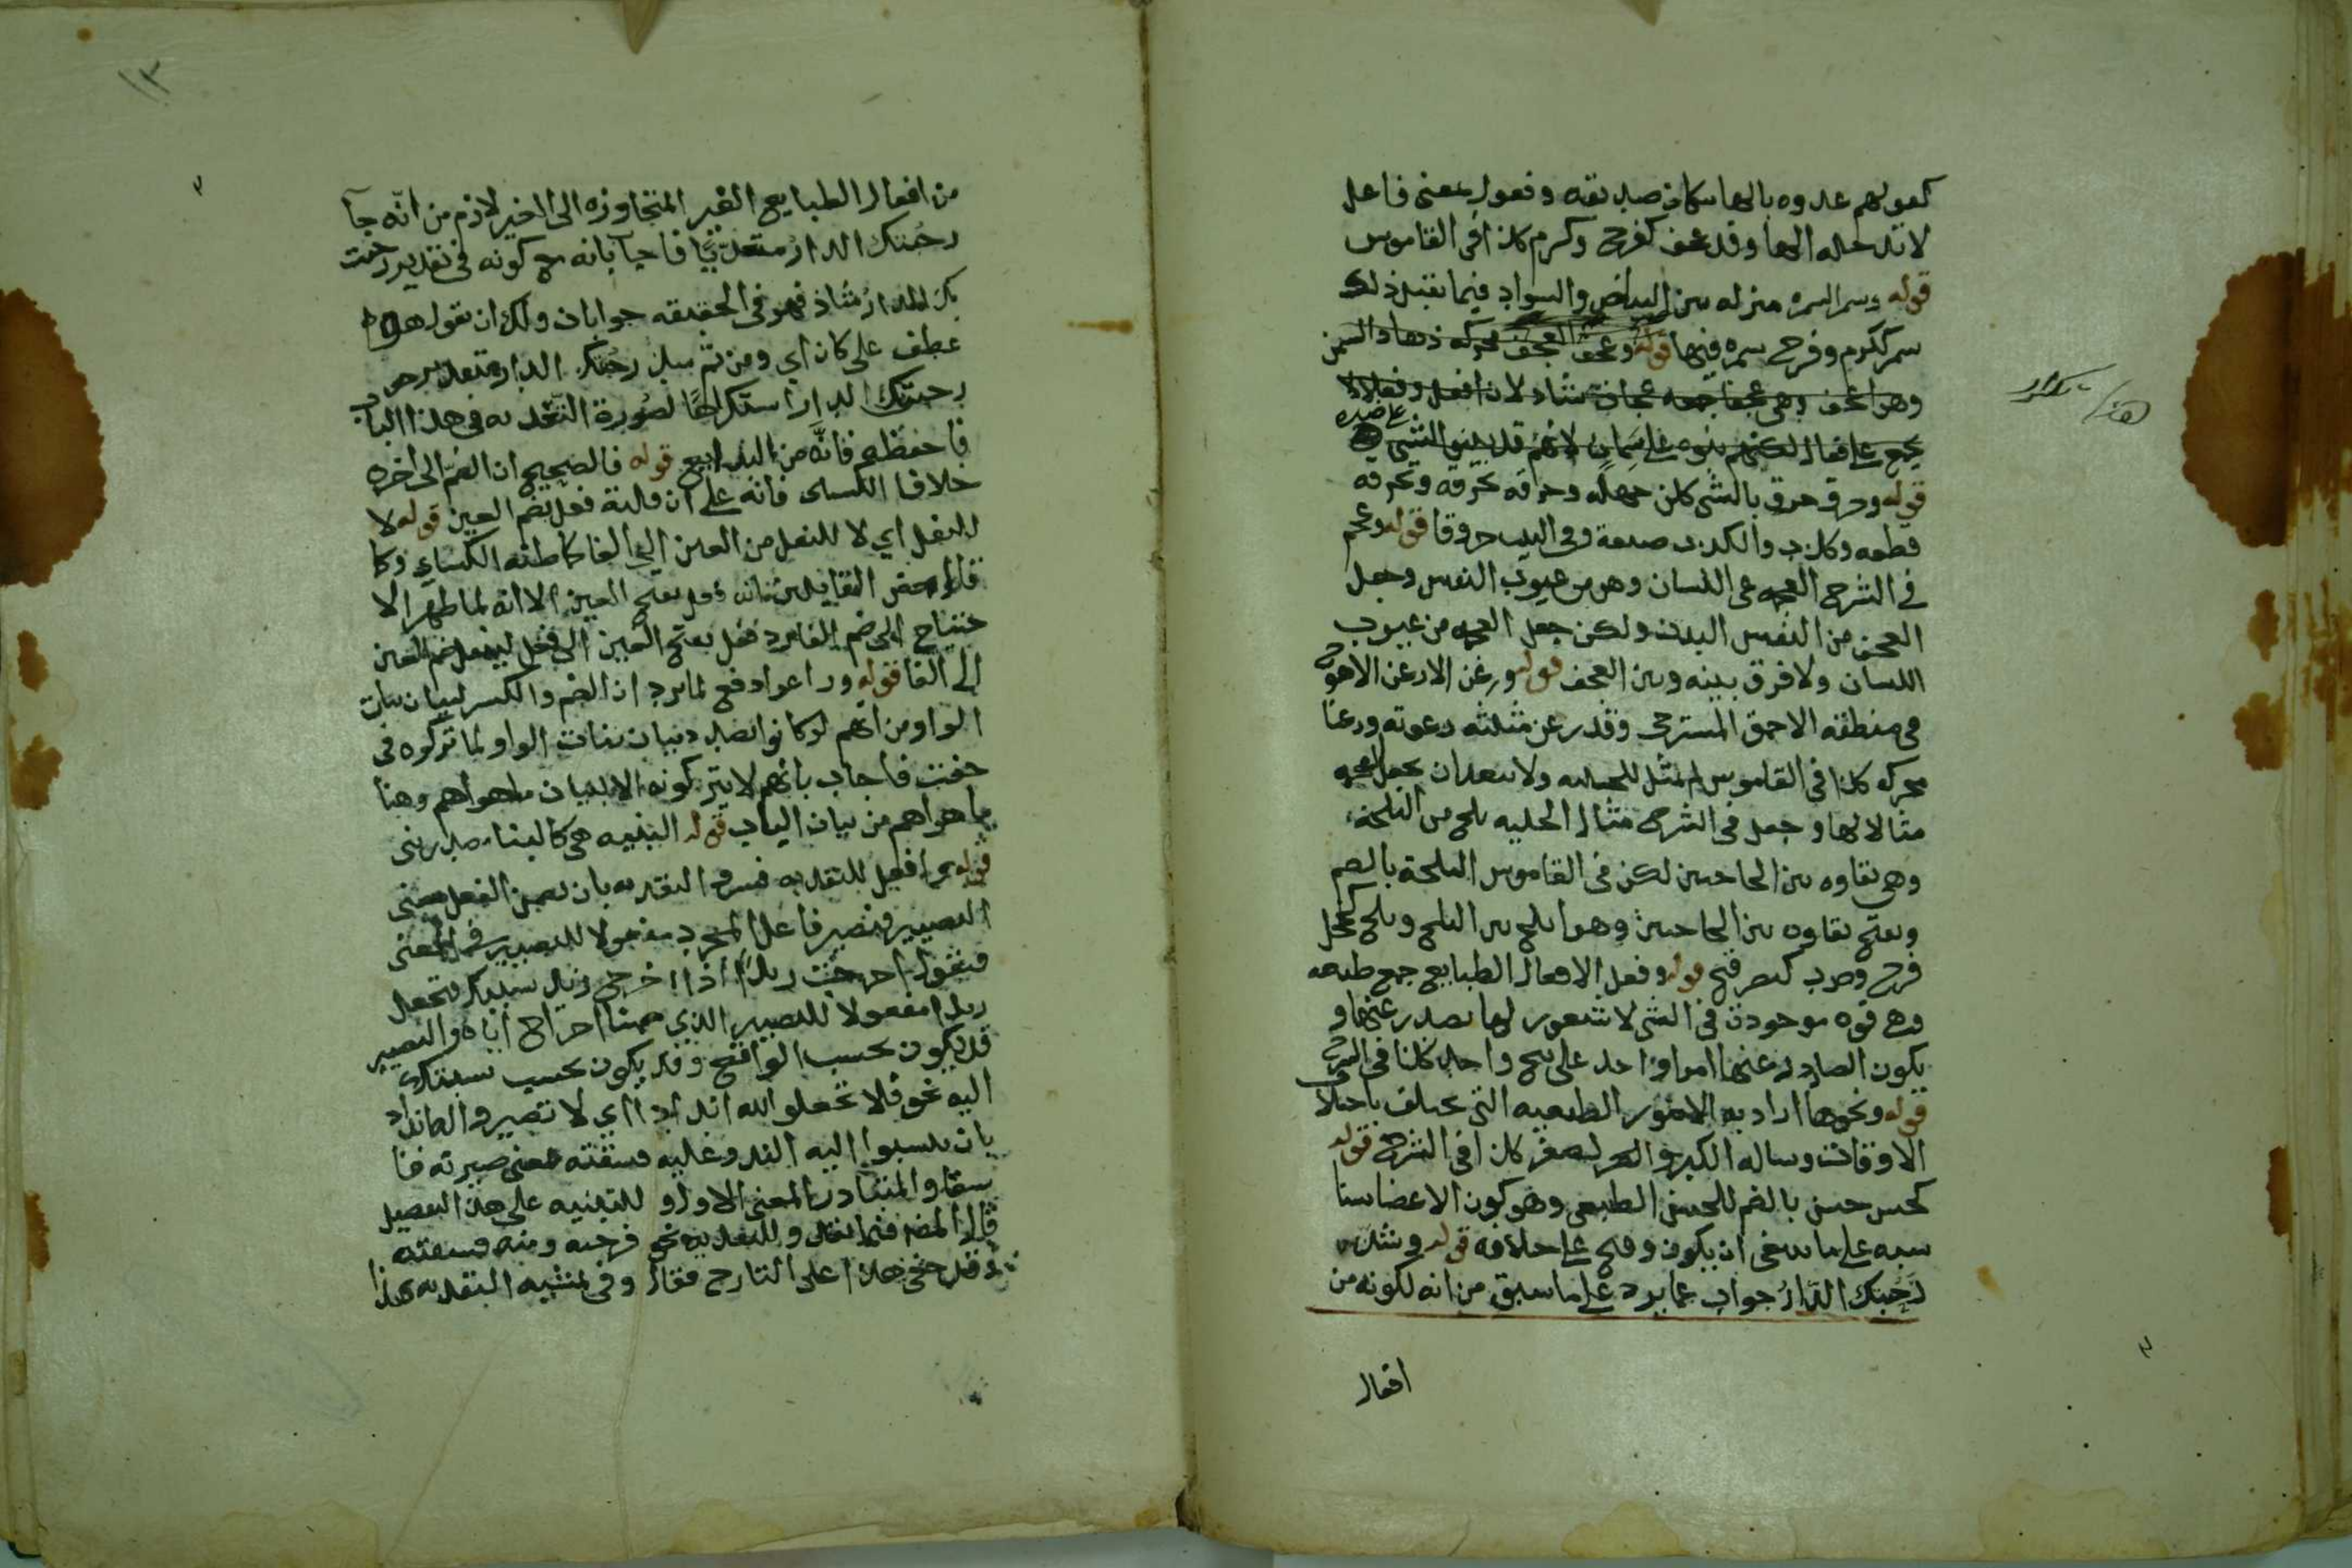 كقولهم عدوه بالهاء لمكان صديقه وفعول بمعنى فاعل
لا تدخله الهاء وقد عجف كفرح وكرم كذا فى القاموس
قوله وسمر السمره منزله بين البياض والسواد فيما يقبل ذلك
سمر ككرم وفرح سمره فيهما قوله وعجف العجف محركه ذهاب السمن
وهو اعجف وهى عجفا جمعه عجاف شاذ لان افعل وفعلاء لا
يجمع على فعال لكنهم بنوه على سمان لانهم قد يبنون الشئ على ضده
قوله وحرق حرق بالشى كلن جهله وحرقه يحرقه ويحرقه
قطعه وكذب والكذب صنعة وفى البيت حروقا قوله وعجم
فى الشرح العجمه عى اللسان وهو من عيوب النفس وجعل
العجف من النفس البدن ولكن جعل العجمه من عيوب
اللسان ولا فرق بينه وبين العجف قوله ورعن الارعن الاهوج
فى منطقه الاحمق المسترخى وقد رعن مثلثه رعونه ورعنا
محركه كذا فى القاموس لم يمثل للحليه ولا يبعد ان يجعل العجمه
مثالا لها وجعل فى الشرح مثال الحليه بلج من البلجة
وهى نقاوه بين الحاجبين لكن فى القاموس البلجة بالضم
وبفتح نقاوه بين الحاجبين وهو ابلج بين البلج وبلج كخجل
فرح وضرب كنصر فتح قوله وفعل لافعال الطبايع جمع طبيعه
وهى قوه موجودة فى الشى لا شعور لها بما يصدر عنها و
يكون الصادر عنها امرا واحد على نهج واحد كذا فى الشرح
قوله ونحوها اراد به الامور الطبيعيه التى تختلف باختلاف
الاوقات وساله الكبر والصغر كذا فى الشرح قوله
كحسن حسن بالضم للحسن الطبيعى وهو كون الاعضا متنا
سبه على ما ينبغى ان يكون وقبح على خلافه قوله وشذ
رَحُبتك الدَّارُ جواب عما يرد على ما سبق من انه لكونه من
افعال
هذا مكرر
١٣
من افعال الطبايع الغير المتجاوزه الى الغير لازم من انّه جآ
رحُبتك الدارُ متعديًا فاجاب بانه مع كونه فى تقدير رحبت
بك الدارُ شاذ فهو فى الحقيقه جوابان ولك ان تقول هو
عطف على كان اى ومن ثم شذ رحُبتك الدار متعد
رحبتك الدار استكراهًا لصورة التعديه فى هذا الباب
فاحفظه فانّه من البدايع قوله فالصحيح ان الضمّ الى اخره
خلافا للكسائى فانه على ان قالته فعل بضم العين قوله لا
للنقل اى لا للنقل من العين الى الفا كما ظنه الكسائى وكا
قال بعض القائلين بانه فعل بفتح العين الا انه لما ظهر الا
حتياج الى ضم الفا رد فعل بفتح العين الى فعل لينقل ضم العين
الى الفا قوله وراعوا دفع لما يرد ان الضم والكسر لبيان بنات
الواو من انهم لو كانوا بصدد بيان بنات الواو لما تركوه فى
خفت فاجاب بانهم لا يتركونه الا لبيان ما هو اهم وهنا
ما هو اهم من بيان الباب قوله البنيه هى كالبنا مصدر بنى
قوله وافعل للتعديه فسر التعديه بان تضمن الفعل معنى
التصيير فتصير فاعل المجرد مفعولا للتصيير فى المعنى
فتقول اخرجت زيدًا اذا خرج زيد بسببك فتجعل
زيدا مفعولا للتصيير الذى معنا اخراج اياه والتصيير
قد يكون بحسب الواقع وقد يكون بحسب نسبتك
اليه نحو فلا تجعلوا لله اندادا اى لا تصيروا له انداد
بان تنسبوا اليه الند وعليه فسقته بمعنى صيرته فا
سقا والمتبادر المعنى الاول وللتنبيه على هذا التفصيل
قال المص فيما بعد وللتعديه نحو فرحته ومنه فسقته
وقد خفى هذا على الشارح فقال وفى تمشيه التعديه هذا